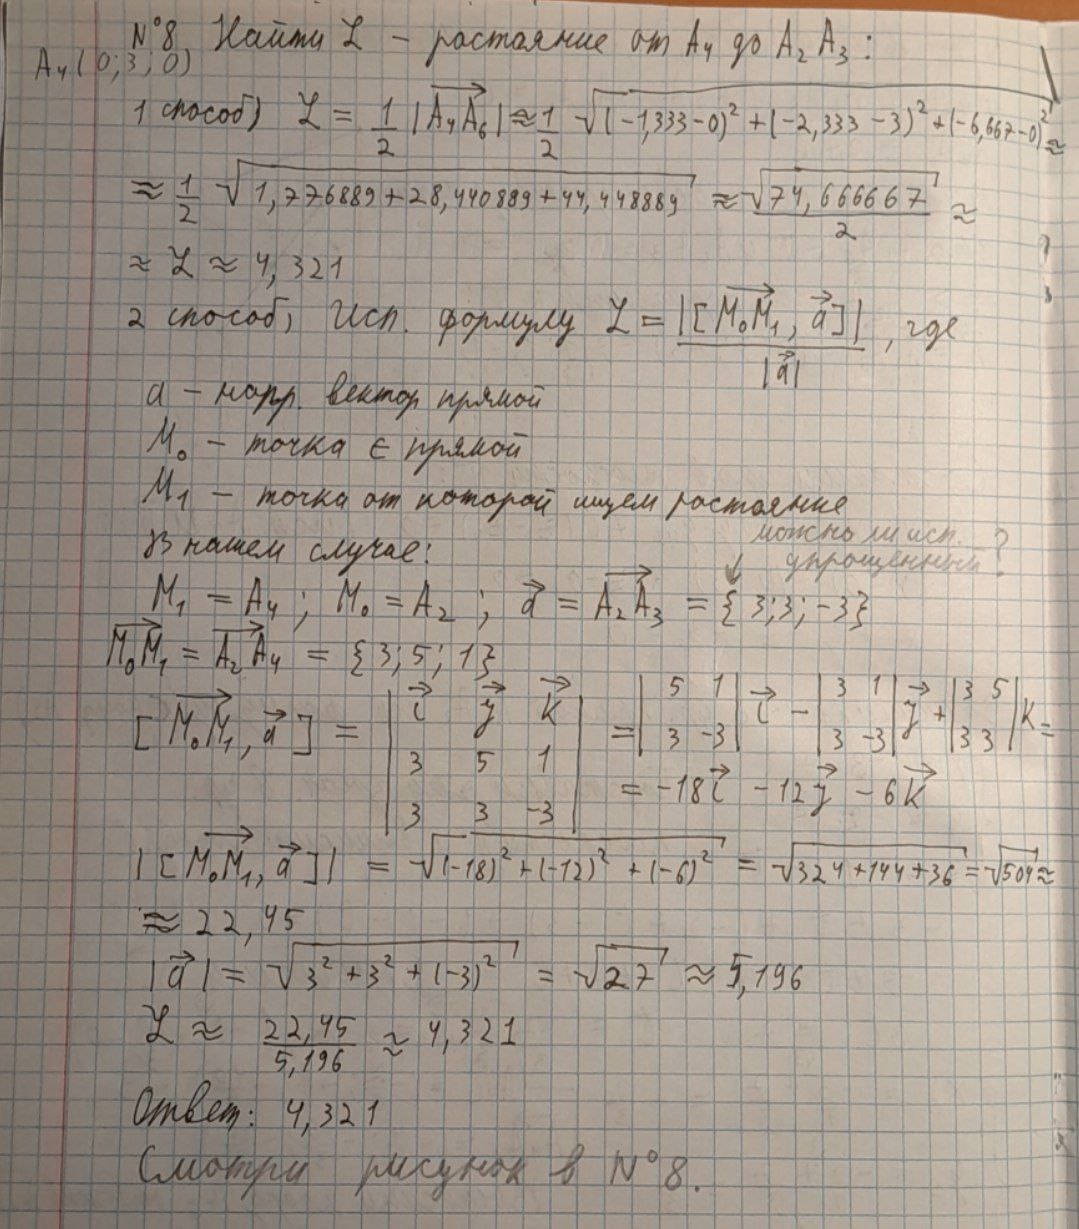 N°8 Найти L - растояние от A₄ до A₂A₃:
A₄(0;3;0)
1 способ) L = 1/2 |A₄A₆| ≈ 1/2 √((-1,333-0)² + (-2,333-3)² + (-6,667-0)²) ≈
≈ 1/2 √(1,776889+28,440889+44,448889) ≈ √74,666667 / 2 ≈
≈ L ≈ 4,321
2 способ) Исп. формулу L = |[M₀M₁, a]| / |a|, где
a - напр. вектор прямой
M₀ - точка ∈ прямой
M₁ - точка от которой ищем растояние
В нашем случае:
можно ли исп. упрощенный?
M₁ = A₄; M₀ = A₂; a = A₂A₃ = {3;3;-3}
M₀M₁ = A₂A₄ = {3;5;1}
[M₀M₁, a] = |i y k; 3 5 1; 3 3 -3| = |5 1; 3 -3| i - |3 1; 3 -3| y + |3 5; 3 3| k =
= -18i -12y -6k
|[M₀M₁, a]| = √((-18)² + (-12)² + (-6)²) = √(324+144+36) = √504 ≈
≈ 22,45
|a| = √(3² + 3² + (-3)²) = √27 ≈ 5,196
L ≈ 22,45 / 5,196 ≈ 4,321
Ответ: 4,321
Смотри рисунок в N°8.